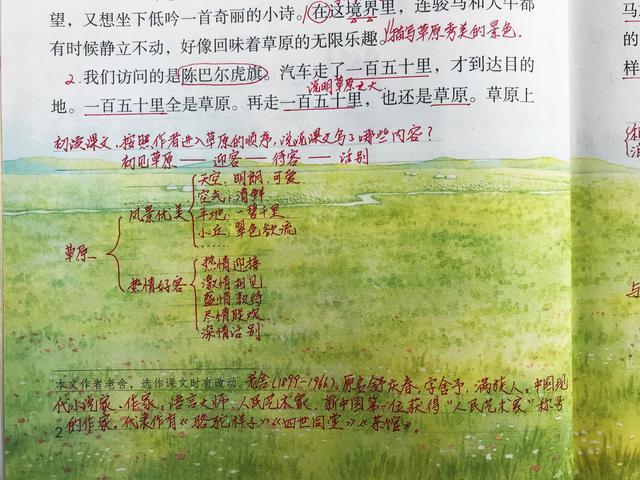 望，又想坐下低吟一首奇丽的小诗。1在这境界里，连骏马和大牛都
有时候静立不动，好像回味着草原的无限乐趣。描写草原秀美的景色.
2.我们访问的是陈巴尔虎旗。汽车走了一百五十里，才到达目的
说明草原之大
地。一百五十里全是草原。再走一百五十里，也还是草原。草原上
初读课文，按照作者进入草原的顺序，说说课文写了哪些内容？
初见草原——迎客——待客——话别
草原
风景优美
天空：明朗、可爱
空气：清鲜
平地：一碧千里
小丘：翠色欲流
……
热情好客
热情迎接
激情相见
盛情款待
尽情联欢
深情话别
本文作者老舍，选作课文时有改动。老舍(1899-1966)，原名舒庆春，字舍予，满族人。中国现
代小说家、作家，语言大师、人民艺术家，新中国第一位获得“人民艺术家”称号
2 的作家。代表作有《骆驼祥子》《四世同堂》《茶馆》。
马
与